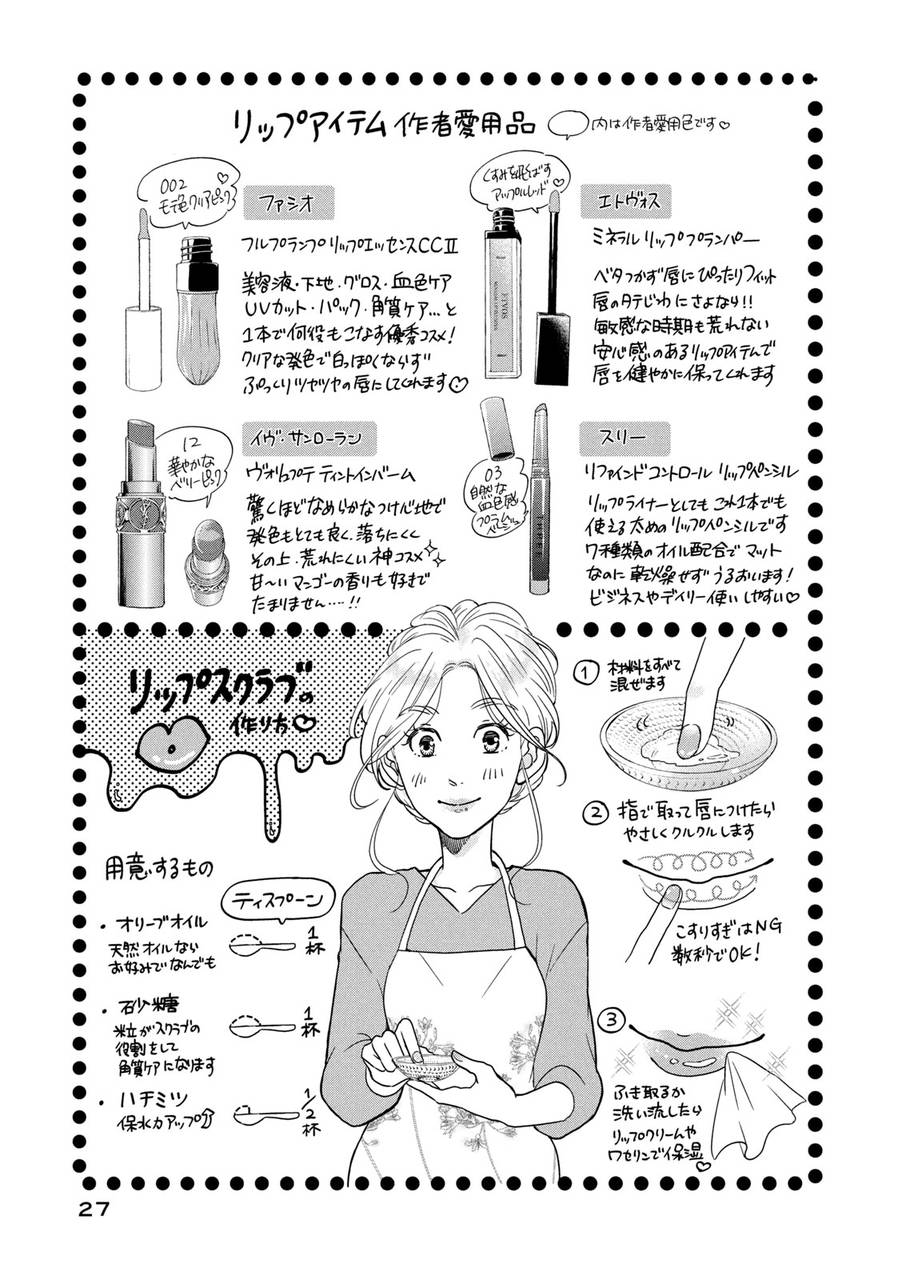 リップアイテム 作者愛用品
内は作者愛用色です♡
002
モテ色クリアピンク
ファシオ
フルプランプリップエッセンスCCⅡ
美容液・下地・グロス・血色ケア
UVカット・パック・角質ケア…と
1本で何役もこなす優秀コスメ!
クリアな発色で白っぽくならず
ぷっくりツヤツヤの唇にしてくれます♡
くすみを飛ばす
アップルレッド
ETVOS
エトヴォス
ミネラルリッププランパー
ベタつかず唇にぴったりフィット
唇のタテじわにさよなら!!
敏感な時期も荒れない
安心感のあるリップアイテムで
唇を健やかに保ってくれます
12
華やかな
ベリーピンク
イヴ・サンローラン
ヴォリュプテ ティントインバーム
驚くほどなめらかなつけ心地で
発色もとても良く、落ちにくく
その上、荒れにくい神コスメ
甘〜いマンゴーの香りも好きで
たまりません…!!
03
自然な
血色感
プラム
THREE
スリー
リファインドコントロール リップペンシル
リップライナーとしても これ1本でも
使える太めのリップペンシルです
7種類のオイル配合で マット
なのに 乾燥せず うるおいます!
ビジネスやデイリー使いしやすい♡
リップスクラブの
作り方♡
用意するもの
ティスプーン
・オリーブオイル
天然オイルなら
お好みでなんでも
1杯
・砂糖
粒がスクラブの
役割をして
角質ケアになります
1杯
・ハチミツ
保水力アップ♪
1/2杯
① 材料をすべて
混ぜます
② 指で取って唇につけたら
やさしくクルクルします
こすりすぎはNG
数秒でOK!
③
ふき取るか
洗い流したら
リップクリームや
ワセリンで保湿♡
27